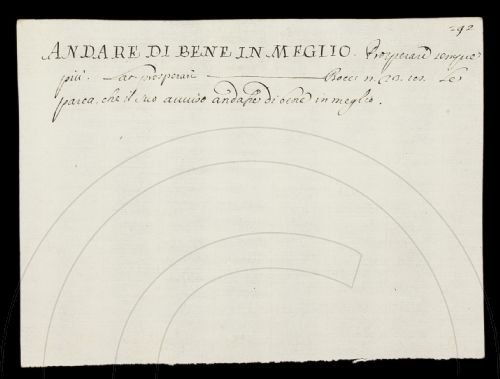 292
ANDARE DI BENE IN MEGLIO. Prosperare sempre
più. Lat. prosperari Bocc. n. 23. tes. Le
parea, che il suo avviso andasse di bene in meglio.